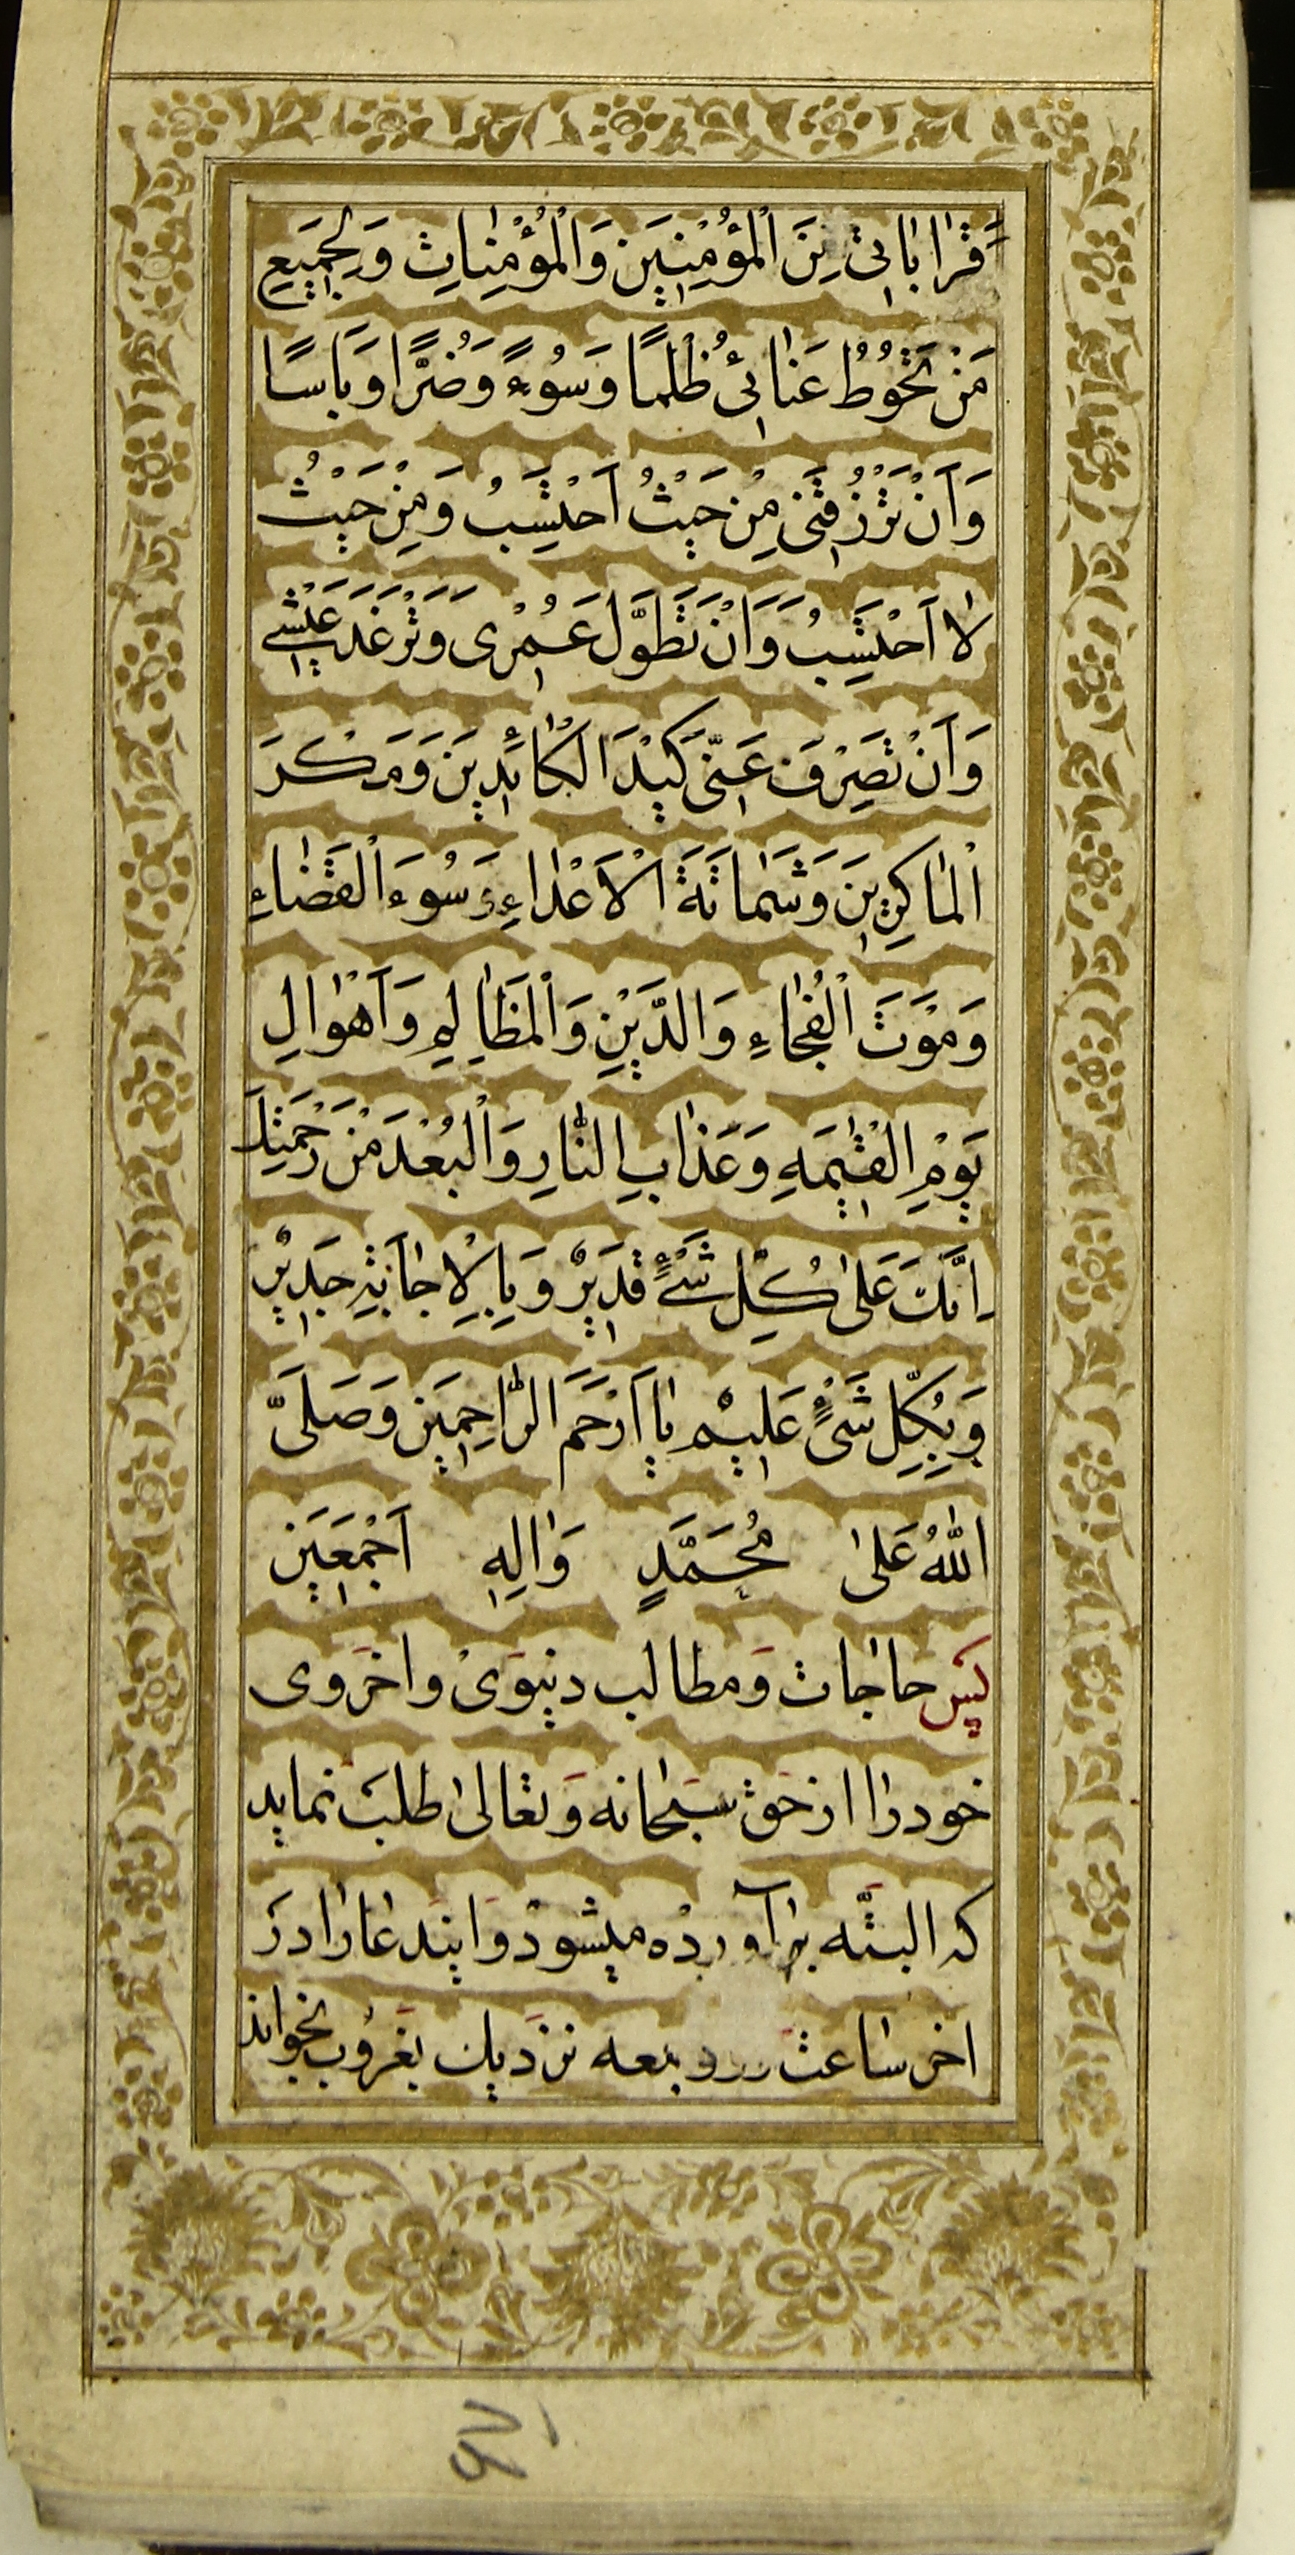 وَقَرٰابٰاتىٖ مِنَ الْمُؤْمِنٖينَ وَالْمُؤْمِنٰاتِ وَلِجَمٖيعِ
مَنْ تَحُوطُ عَنٰائىٖ ظُلْمًا وَسُوءً وَضُرًّا وَبَاسًا
وَاَنْ تَرْزُقَنٖى مِنْ حَيْثُ اَحْتَسِبُ وَمِنْ حَيْثُ
لٰا اَحْتَسِبُ وَاَنْ تُطَوِّلَ عُمْرٖى وَتُرْغَدَ عَيْشٖى
وَاَنْ تَصْرِفَ عَنّٖى كَيْدَ الْكٰائِدٖينَ وَمَكْرَ
الْمٰاكِرٖينَ وَشَمٰاتَةَ الْاَعْدٰاءِ وَسُوءَ الْقَضٰاءِ
وَمَوْتَ الْفُجٰاءِ وَالدَّيْنِ وَالْمَظٰالِمِ وَاَهْوٰالِ
يَوْمِ الْقِيٰمَةِ وَعَذٰابِ النّٰارِ وَالْبُعْدَ مِنْ رَحْمَتِكَ
اِنَّكَ عَلٰى كُلِّ شَىْءٍ قَدٖيرٌ وَبِالْاِجٰابَةِ جَدٖيرٌ
وَبِكُلِّ شَىْءٍ عَلٖيمٌ يٰا اَرْحَمَ الرّٰاحِمٖينَ وَصَلَّى
اللّٰهُ عَلٰى مُحَمَّدٍ وَاٰلِهٖ اَجْمَعٖينَ
پس حاجات و مطالب دنيوى واخروى
خود را از حق سبحانه و تعالى طلب نمايد
كه البته برآورده ميشود و ايندعا را در
اخر ساعت جمعه نزديك بغروب بخواند